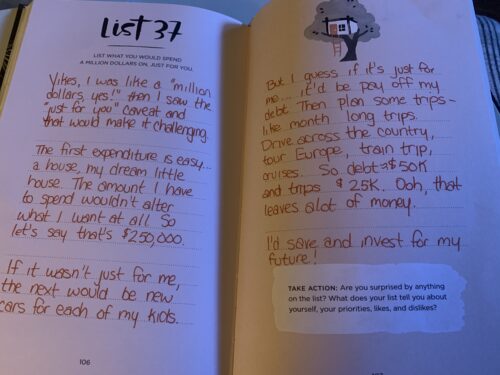 List 37
LIST WHAT YOU WOULD SPEND
A MILLION DOLLARS ON, JUST FOR YOU.
Yikes, I was like a "million
dollars, yes!" then I saw the
"just for you" caveat and
that would make it challenging.
The first expenditure is easy...
a house, my dream little
house. The amount I have
to spend wouldn't alter
what I want at all. So
let's say that's $250,000.
If it wasn't just for me,
the next would be new
cars for each of my kids.
106
But I guess if it's just for
me... it'd be pay off my
debt. Then plan some trips-
like month long trips.
Drive across the country,
tour Europe, train trip,
cruises. So debt=$50K
and trips $25K. Ooh, that
leaves alot of money.
I'd save and invest for my
future!
TAKE ACTION: Are you surprised by anything
on the list? What does your list tell you about
yourself, your priorities, likes, and dislikes?
107